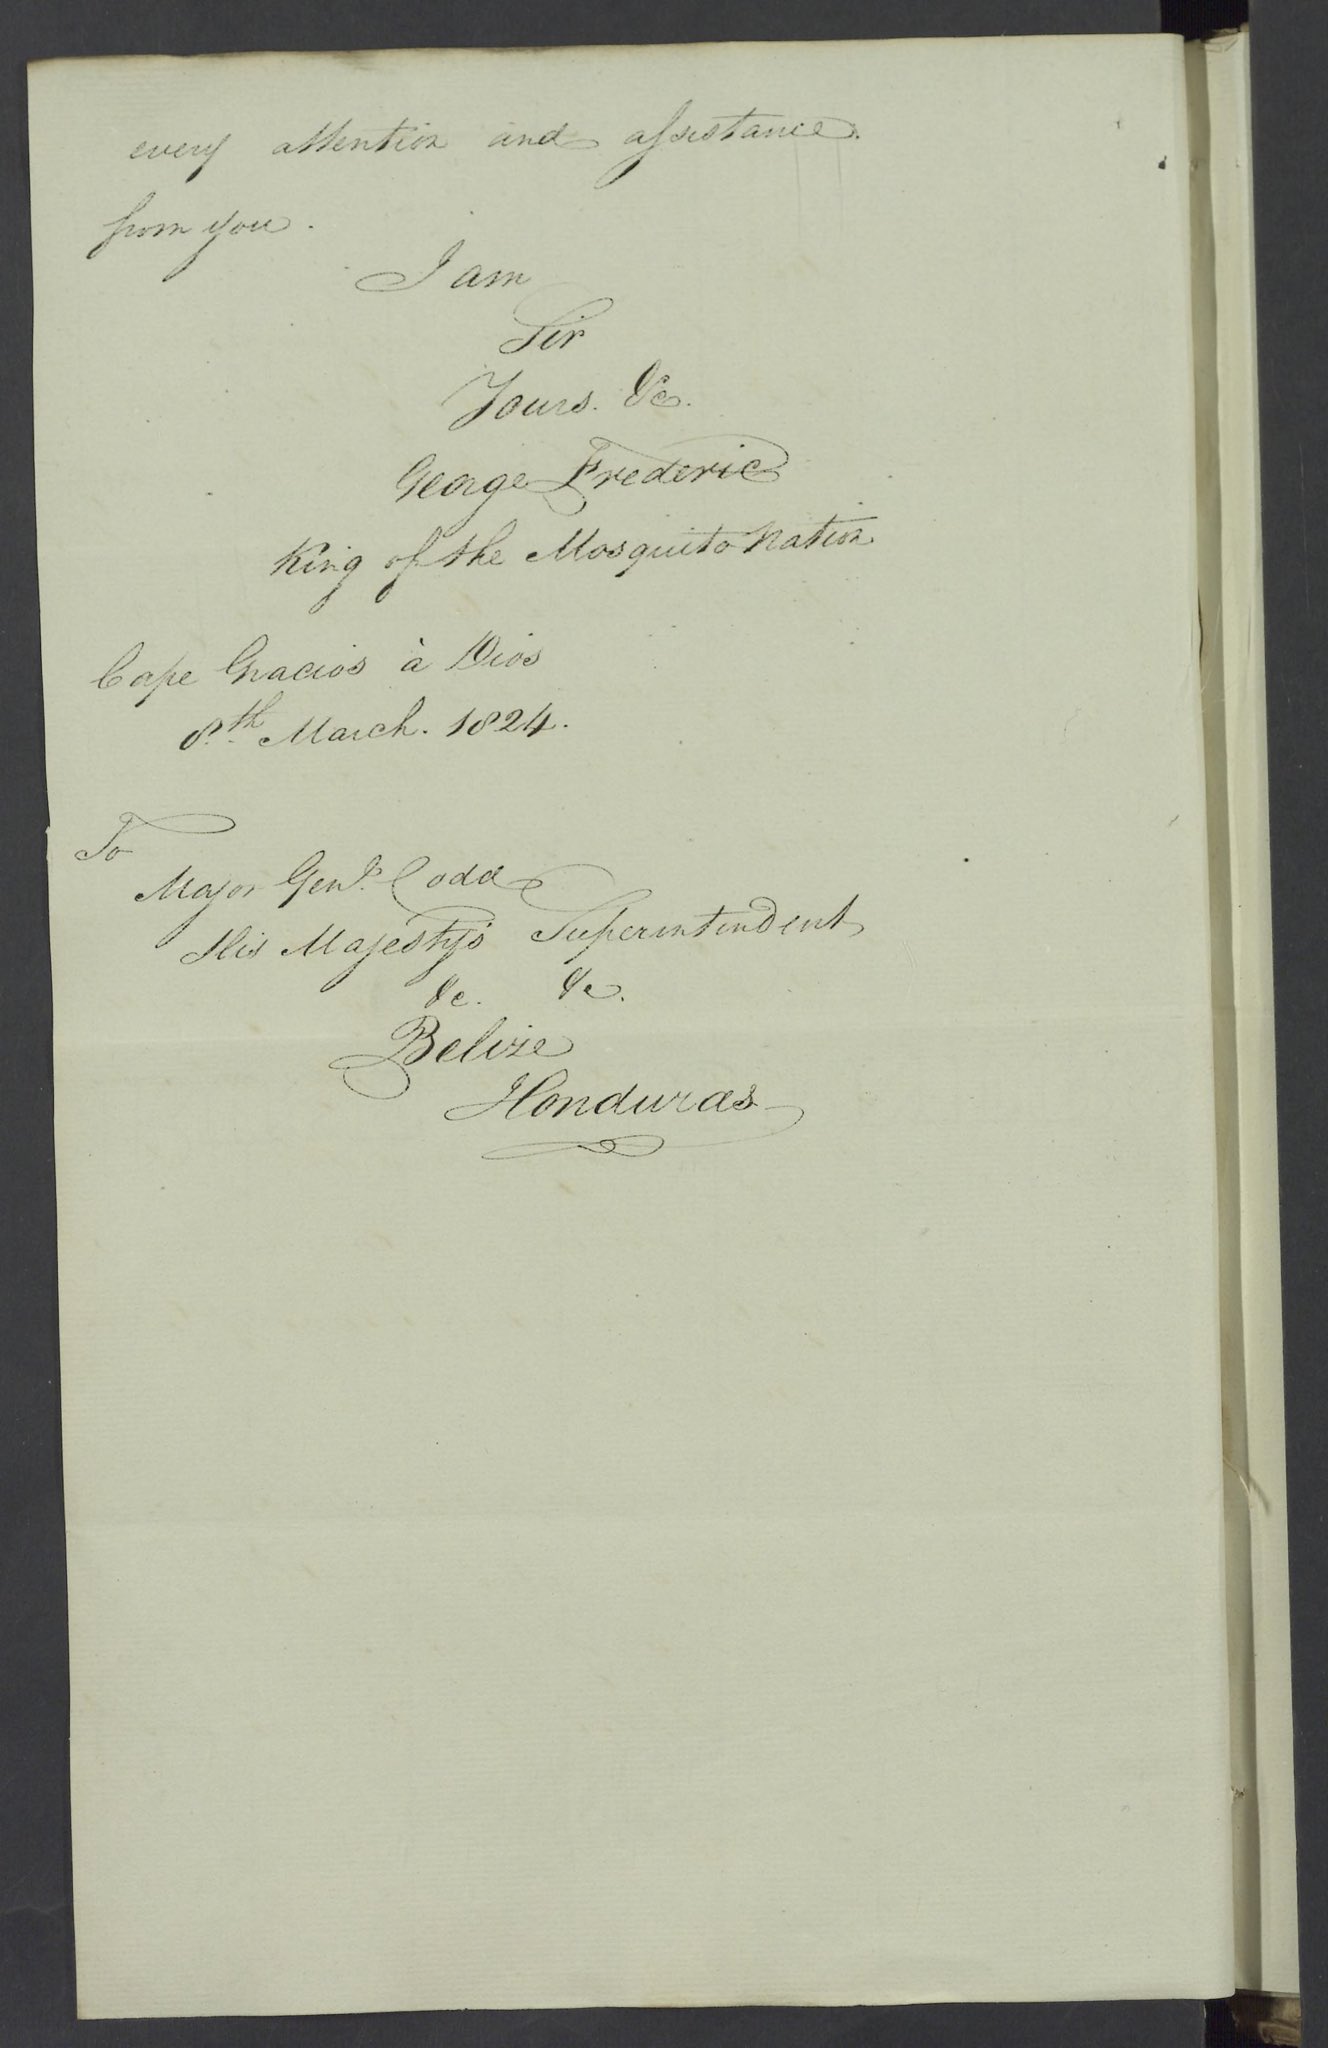 every attention and assistance
from you.
I am
Sir
Yours. &c.
George Frederic
King of the Mosquito Nation
Cape Gracios à Dios
8.th March. 1824.
To
Major Genl. Codd
His Majesty's Superintendent
&c. &c.
Belize
Honduras